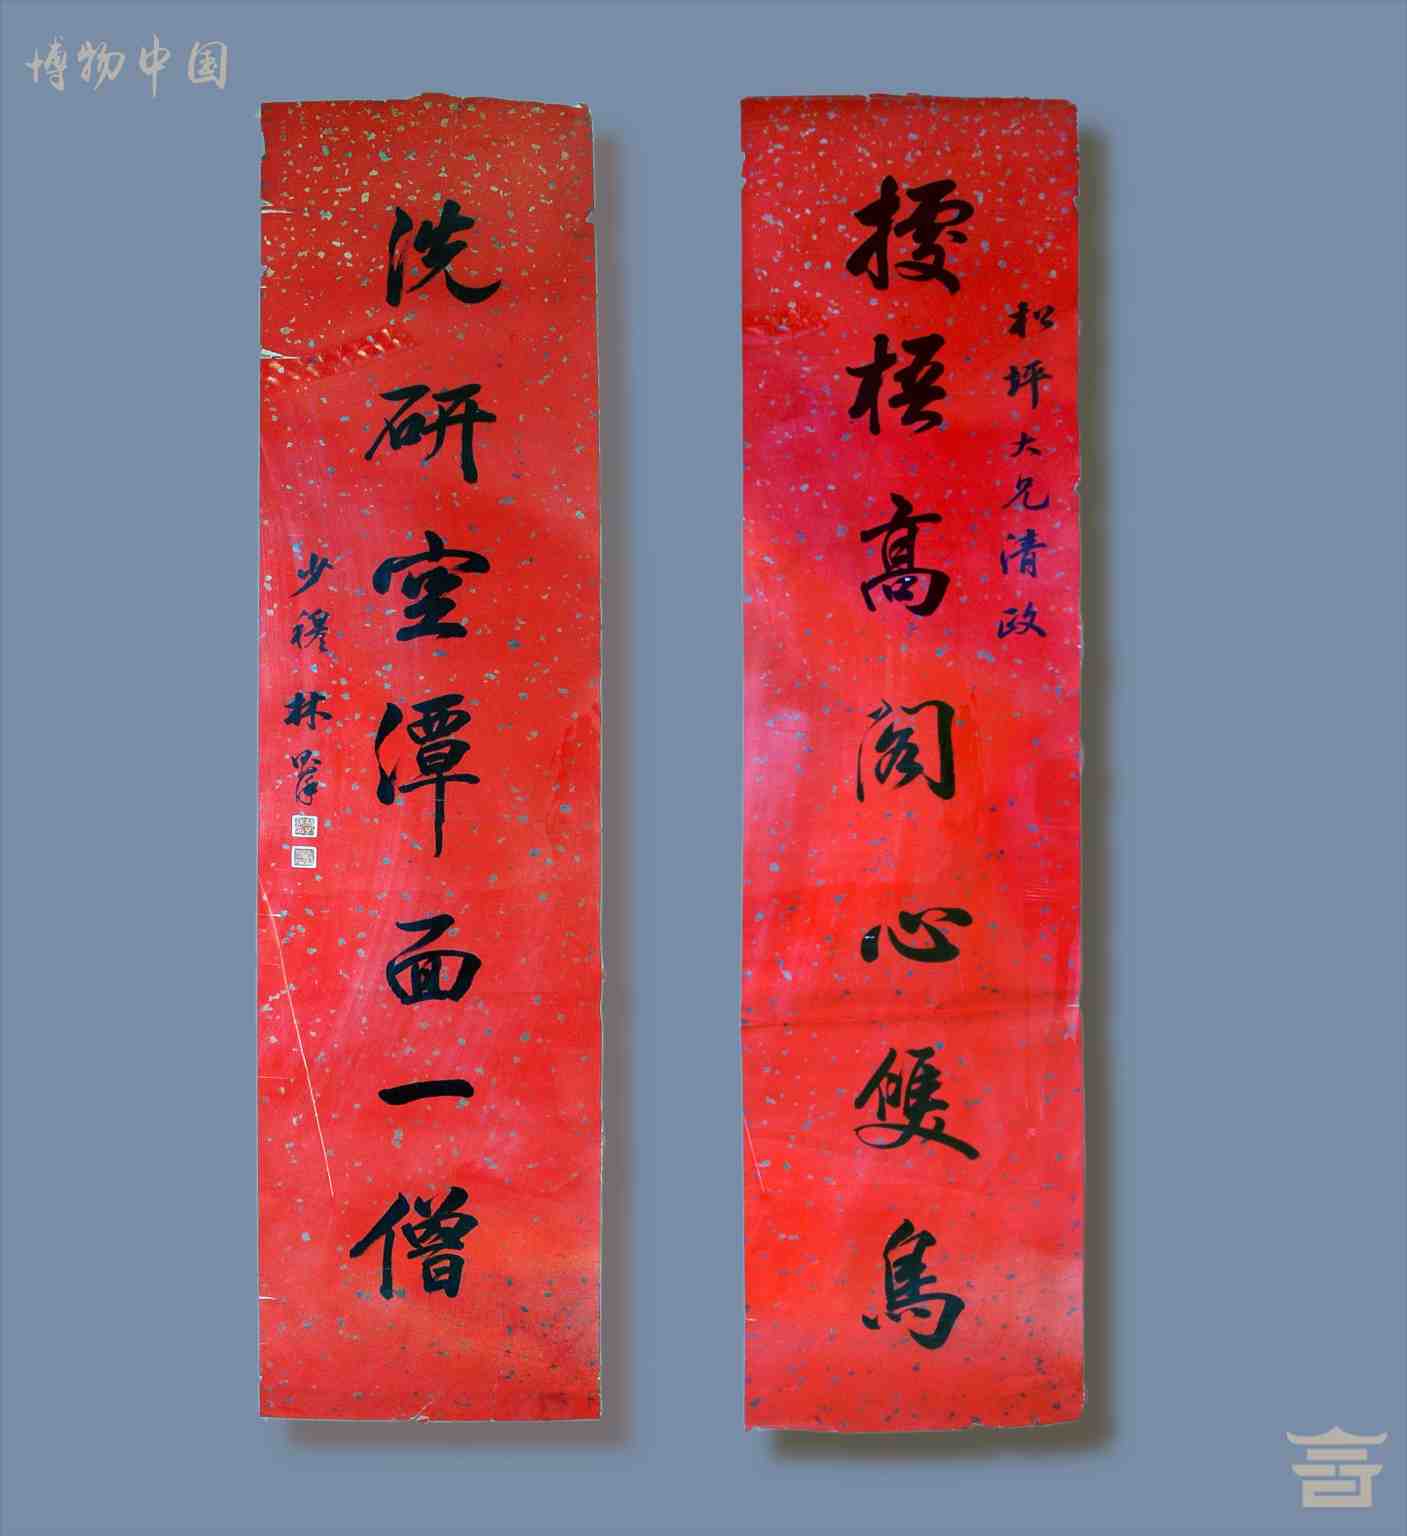 博物中国
松坪大兄清政
據梧髙閣心雙鳥
洗研空潭面一僧
少穆林